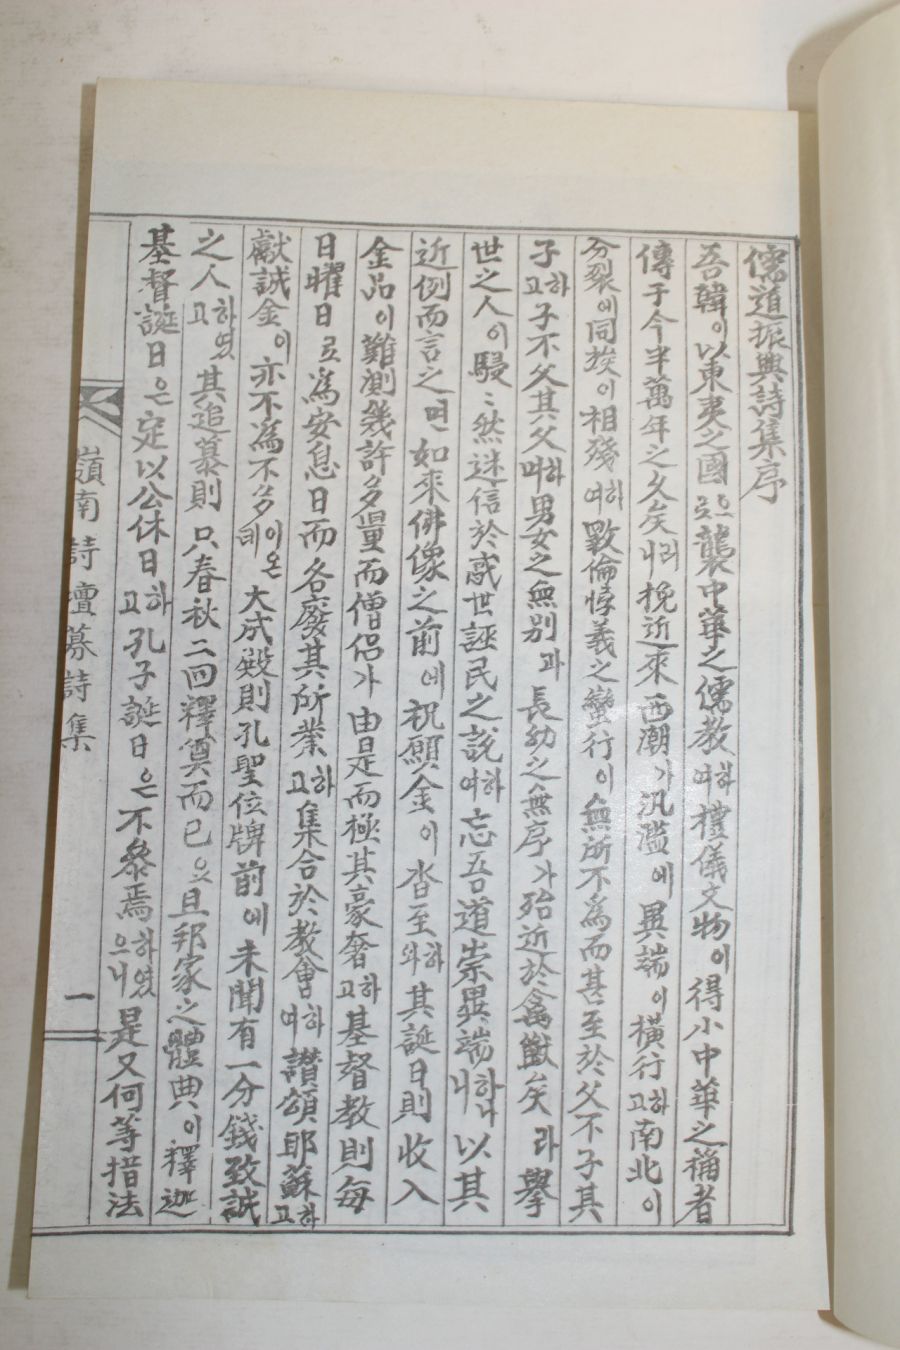 儒道振興詩集序
吾韓이以東夷之國으로襲中華之儒教하여禮儀文物이得小中華之稱者
傳于今半萬年之久矣러니挽近來西潮가汎濫에異端이橫行하고南北이
分裂에同族이相殘하여斁倫悖義之蠻行이無所不為而甚至於父不子其
子하고子不父其父하며男女之無別과長幼之無序가殆近於禽獸矣라擧
世之人이駸〻然迷信於惑世誣民之說하여忘吾道崇異端하나니以其
近例而言之면如來佛像之前에祝願金이沓至하와其誕日則收入
金品이難測幾許多量而僧侶가由是而極其豪奢하고基督教則每
日曜日로為安息日而各廢其所業하고集合於教會하여讃頌耶蘇하고
獻誠金이亦不為不多이온데大成殿則孔聖位牌前에未聞有一分錢致誠
之人하였고其追慕則只春秋二回釋奠而已으且邦家之體典이釋迦
基督誕日은定以公休日하고孔子誕日은不參焉하였으니是又何等措法
嶺南詩壇募詩集
一